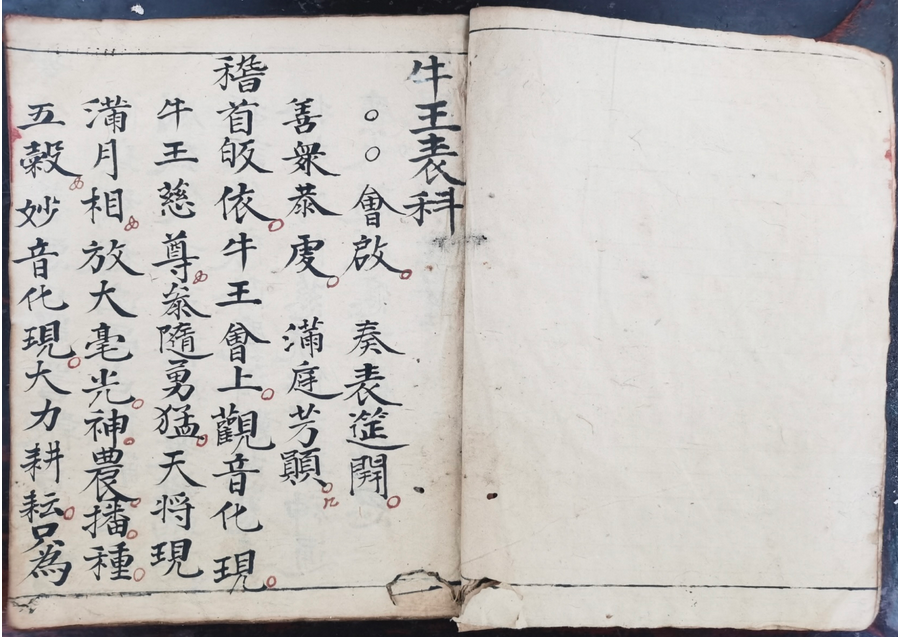 牛王表科
○○會啟。奏表筵開。
善衆恭虔。滿庭芳顯。
稽首皈依。牛王會上。觀音化現。
牛王慈尊叅隨勇猛。天将現
滿月相放大毫光。神農。播。種。
五糓妙音化現。大力耕耘。只為